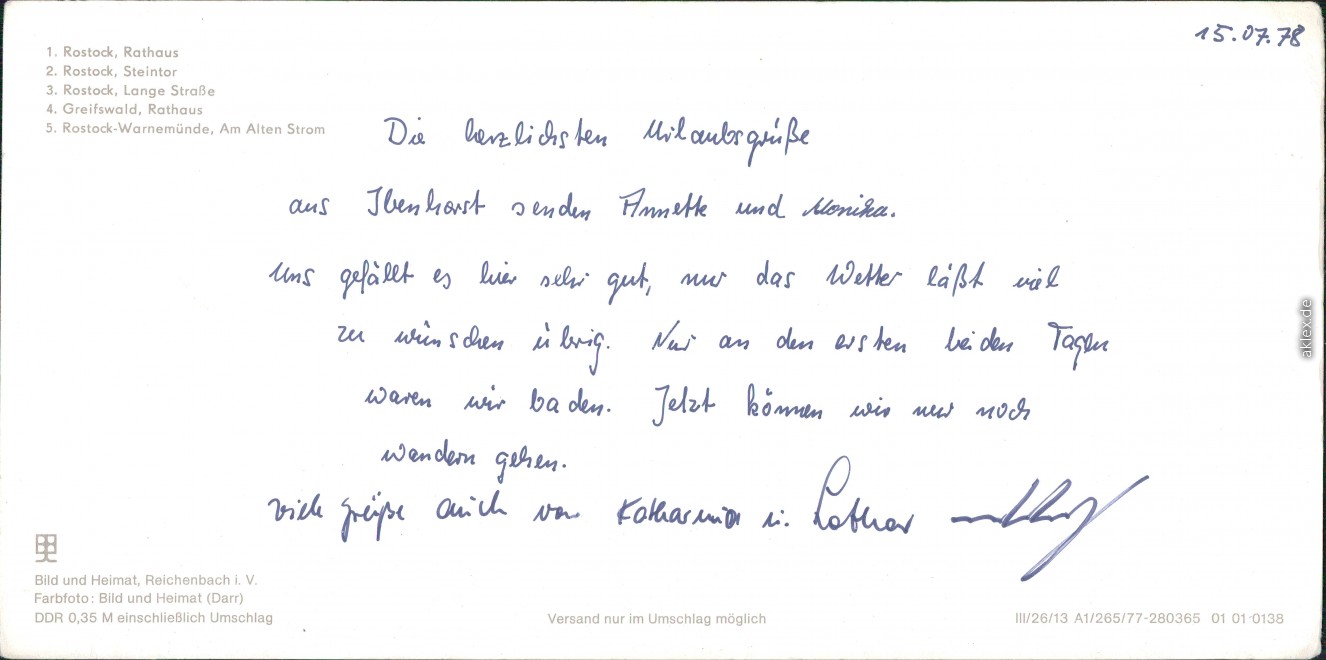 15.07.78
1. Rostock, Rathaus
2. Rostock, Steintor
3. Rostock, Lange Straße
4. Greifswald, Rathaus
5. Rostock-Warnemünde, Am Alten Strom
Die herzlichsten Urlaubsgrüße
aus Ibenhorst senden Annette und Monika.
Uns gefällt es hier sehr gut, nur das Wetter läßt viel
zu wünschen übrig. Nur an den ersten beiden Tagen
waren wir baden. Jetzt können wir nur noch
wandern gehen.
viele grüße auch von Katharina u. Lothar
Bild und Heimat, Reichenbach i. V.
Farbfoto: Bild und Heimat (Darr)
DDR 0,35 M einschließlich Umschlag
Versand nur im Umschlag möglich
III/26/13 A1/265/77-280365 01 01·0138
aklex.de